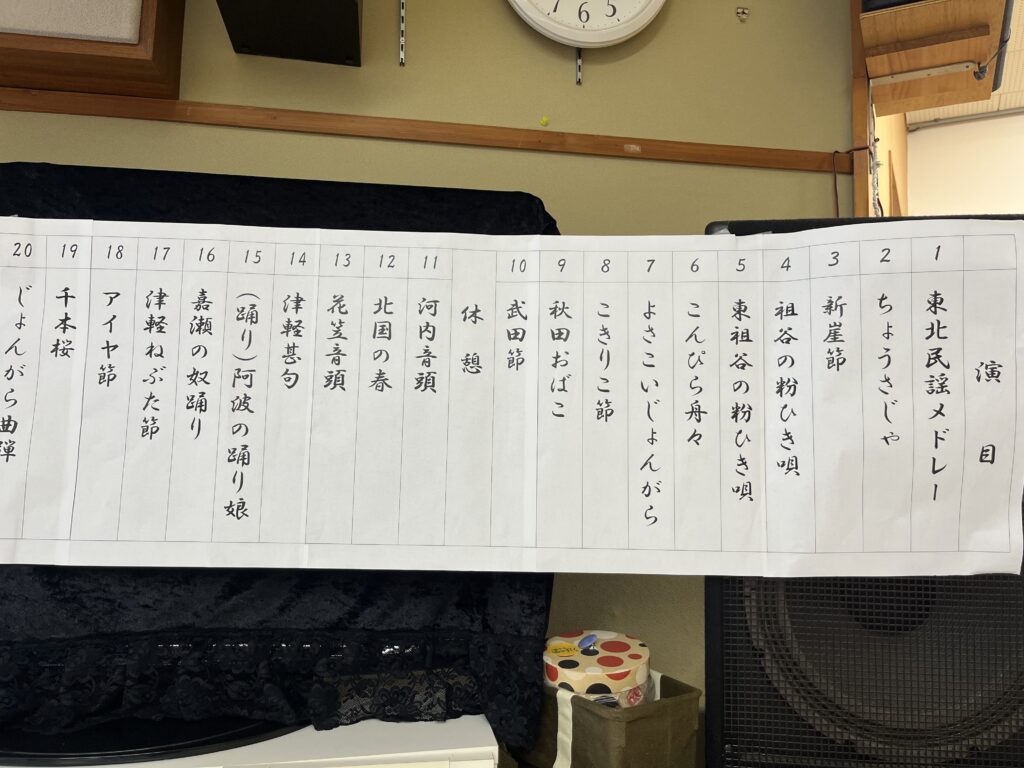 演目
1 東北民謡メドレー
2 ちょうさじゃ
3 新崖節
4 祖谷の粉ひき唄
5 東祖谷の粉ひき唄
6 こんぴら舟々
7 よさこいじょんがら
8 こきりこ節
9 秋田おばこ
10 武田節
休憩
11 河内音頭
12 北国の春
13 花笠音頭
14 津軽甚句
15 (踊り)阿波の踊り娘
16 嘉瀬の奴踊り
17 津軽ねぶた節
18 アイヤ節
19 千本桜
20 じょんがら曲弾
7 6 5